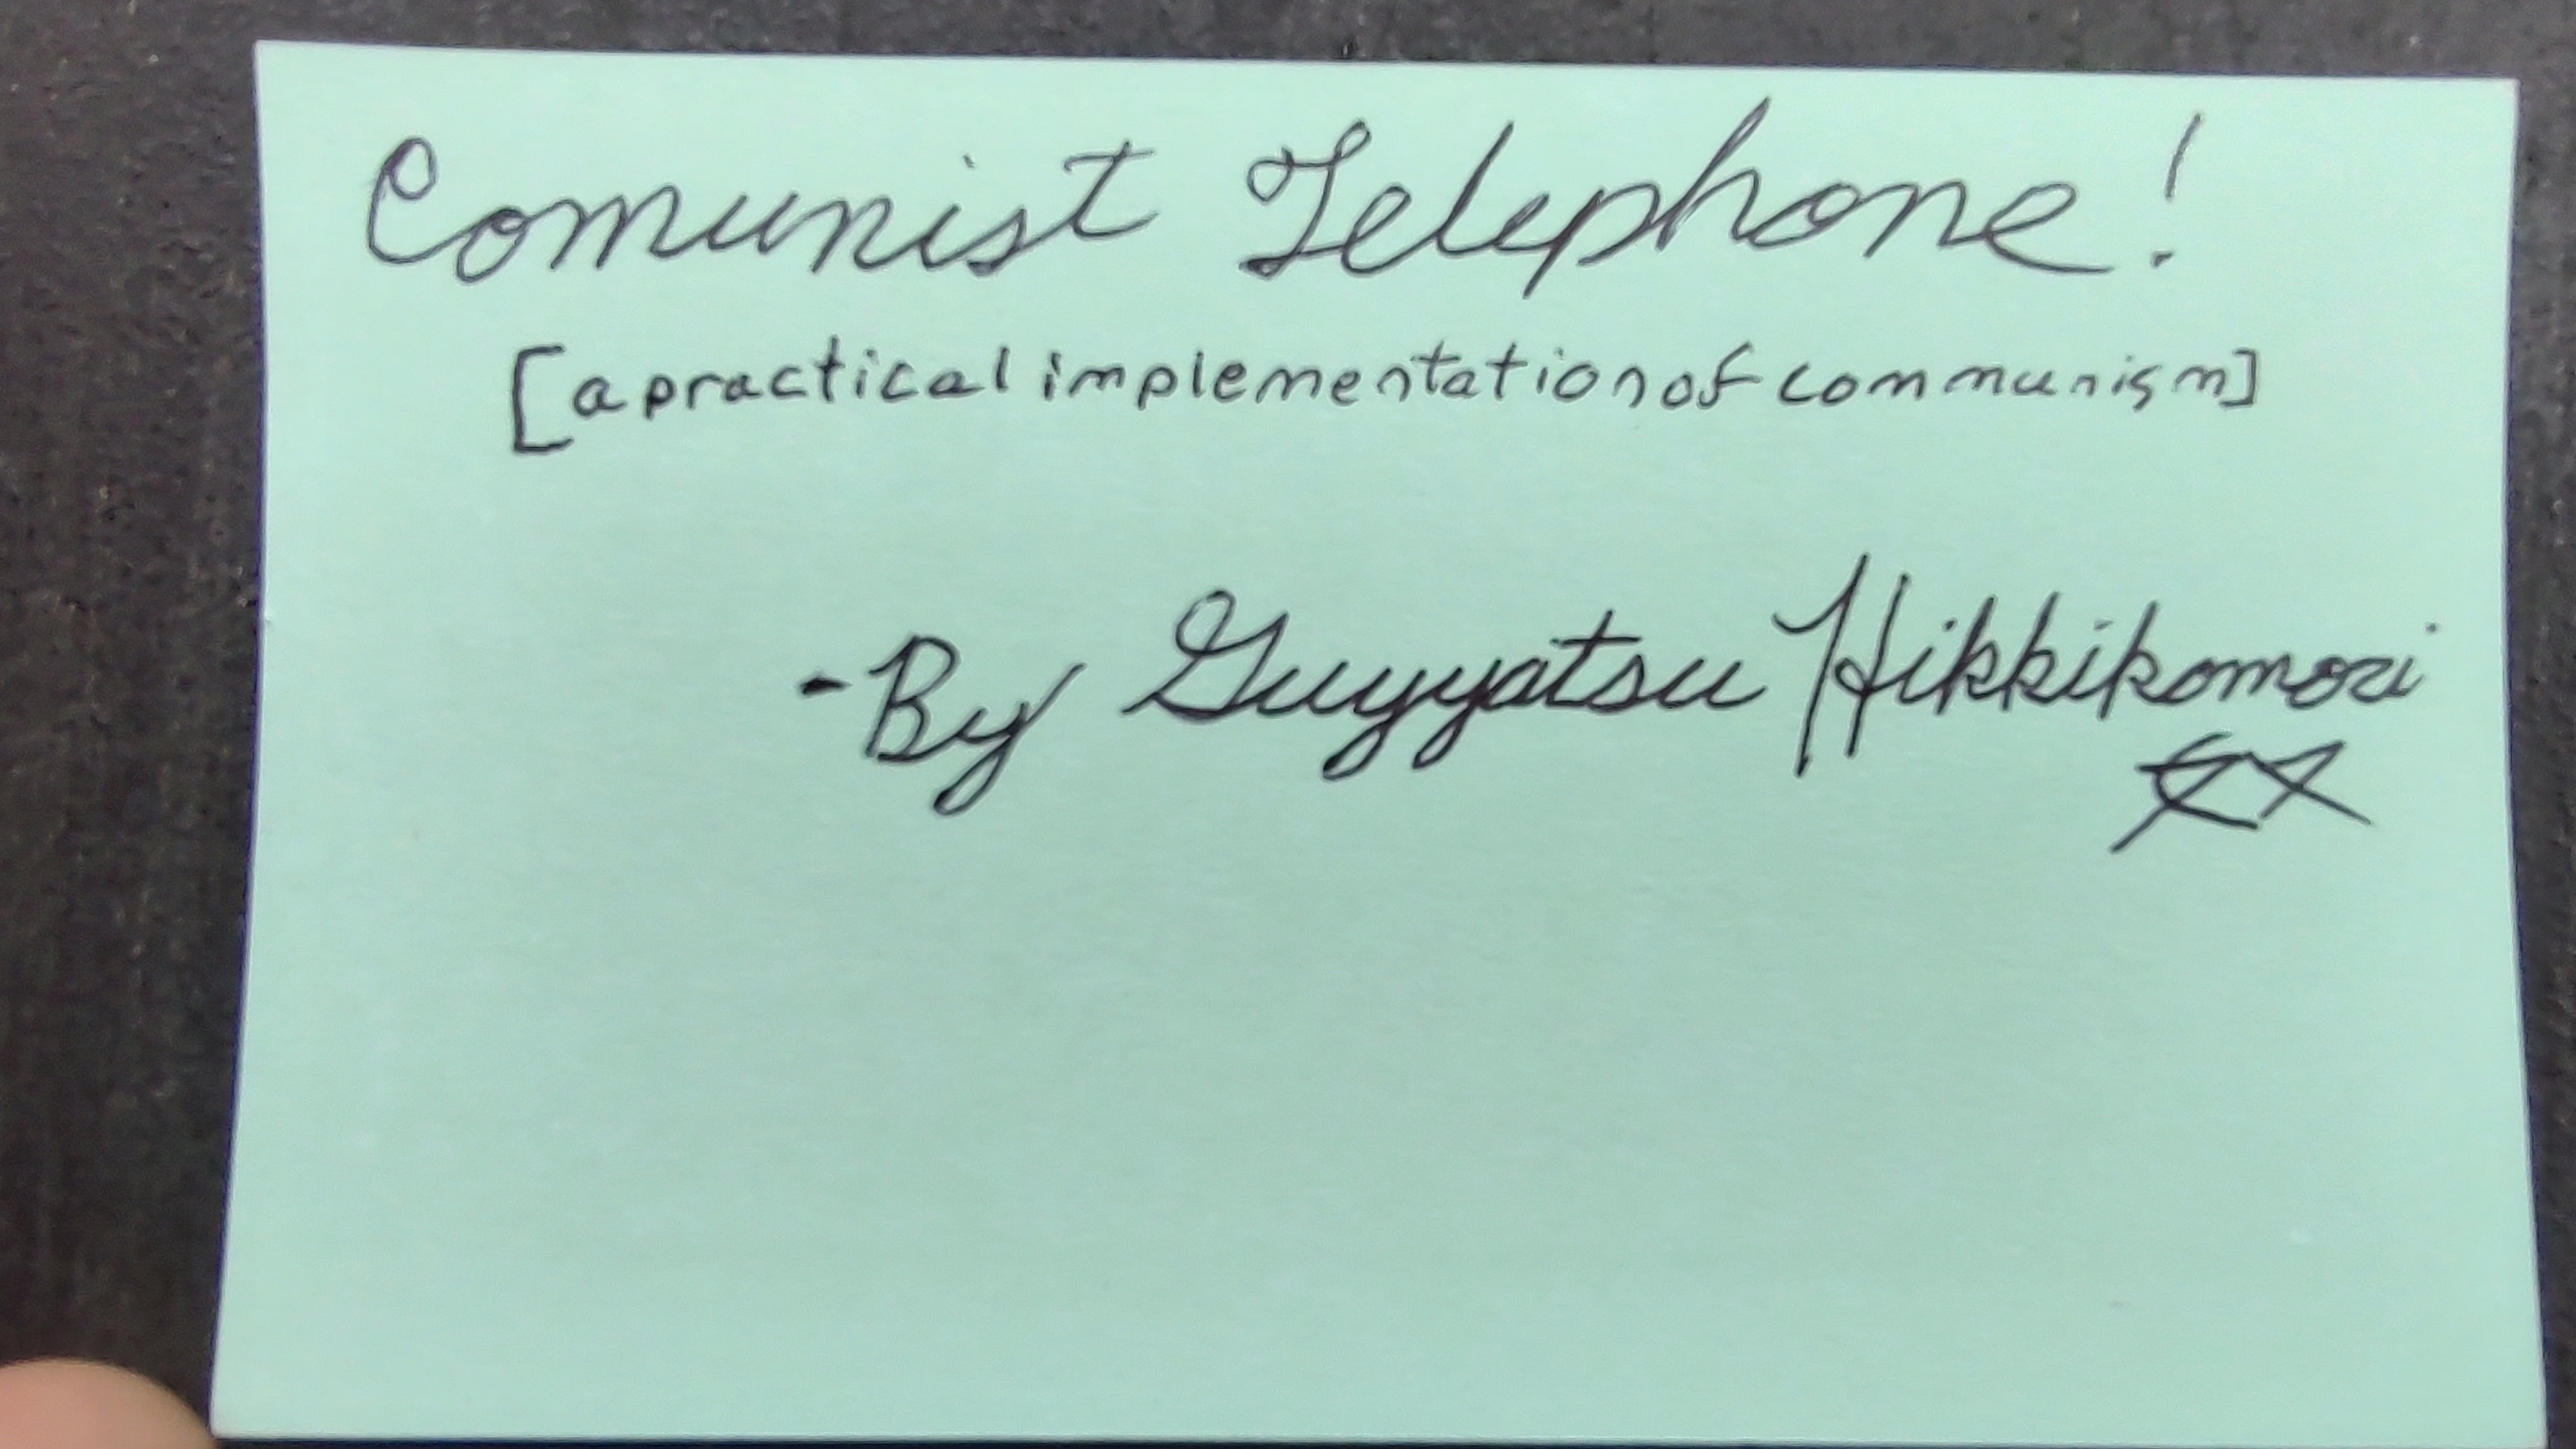 Comunist Telephone!
[a practical implementation of communism]
-By Hikkikomori